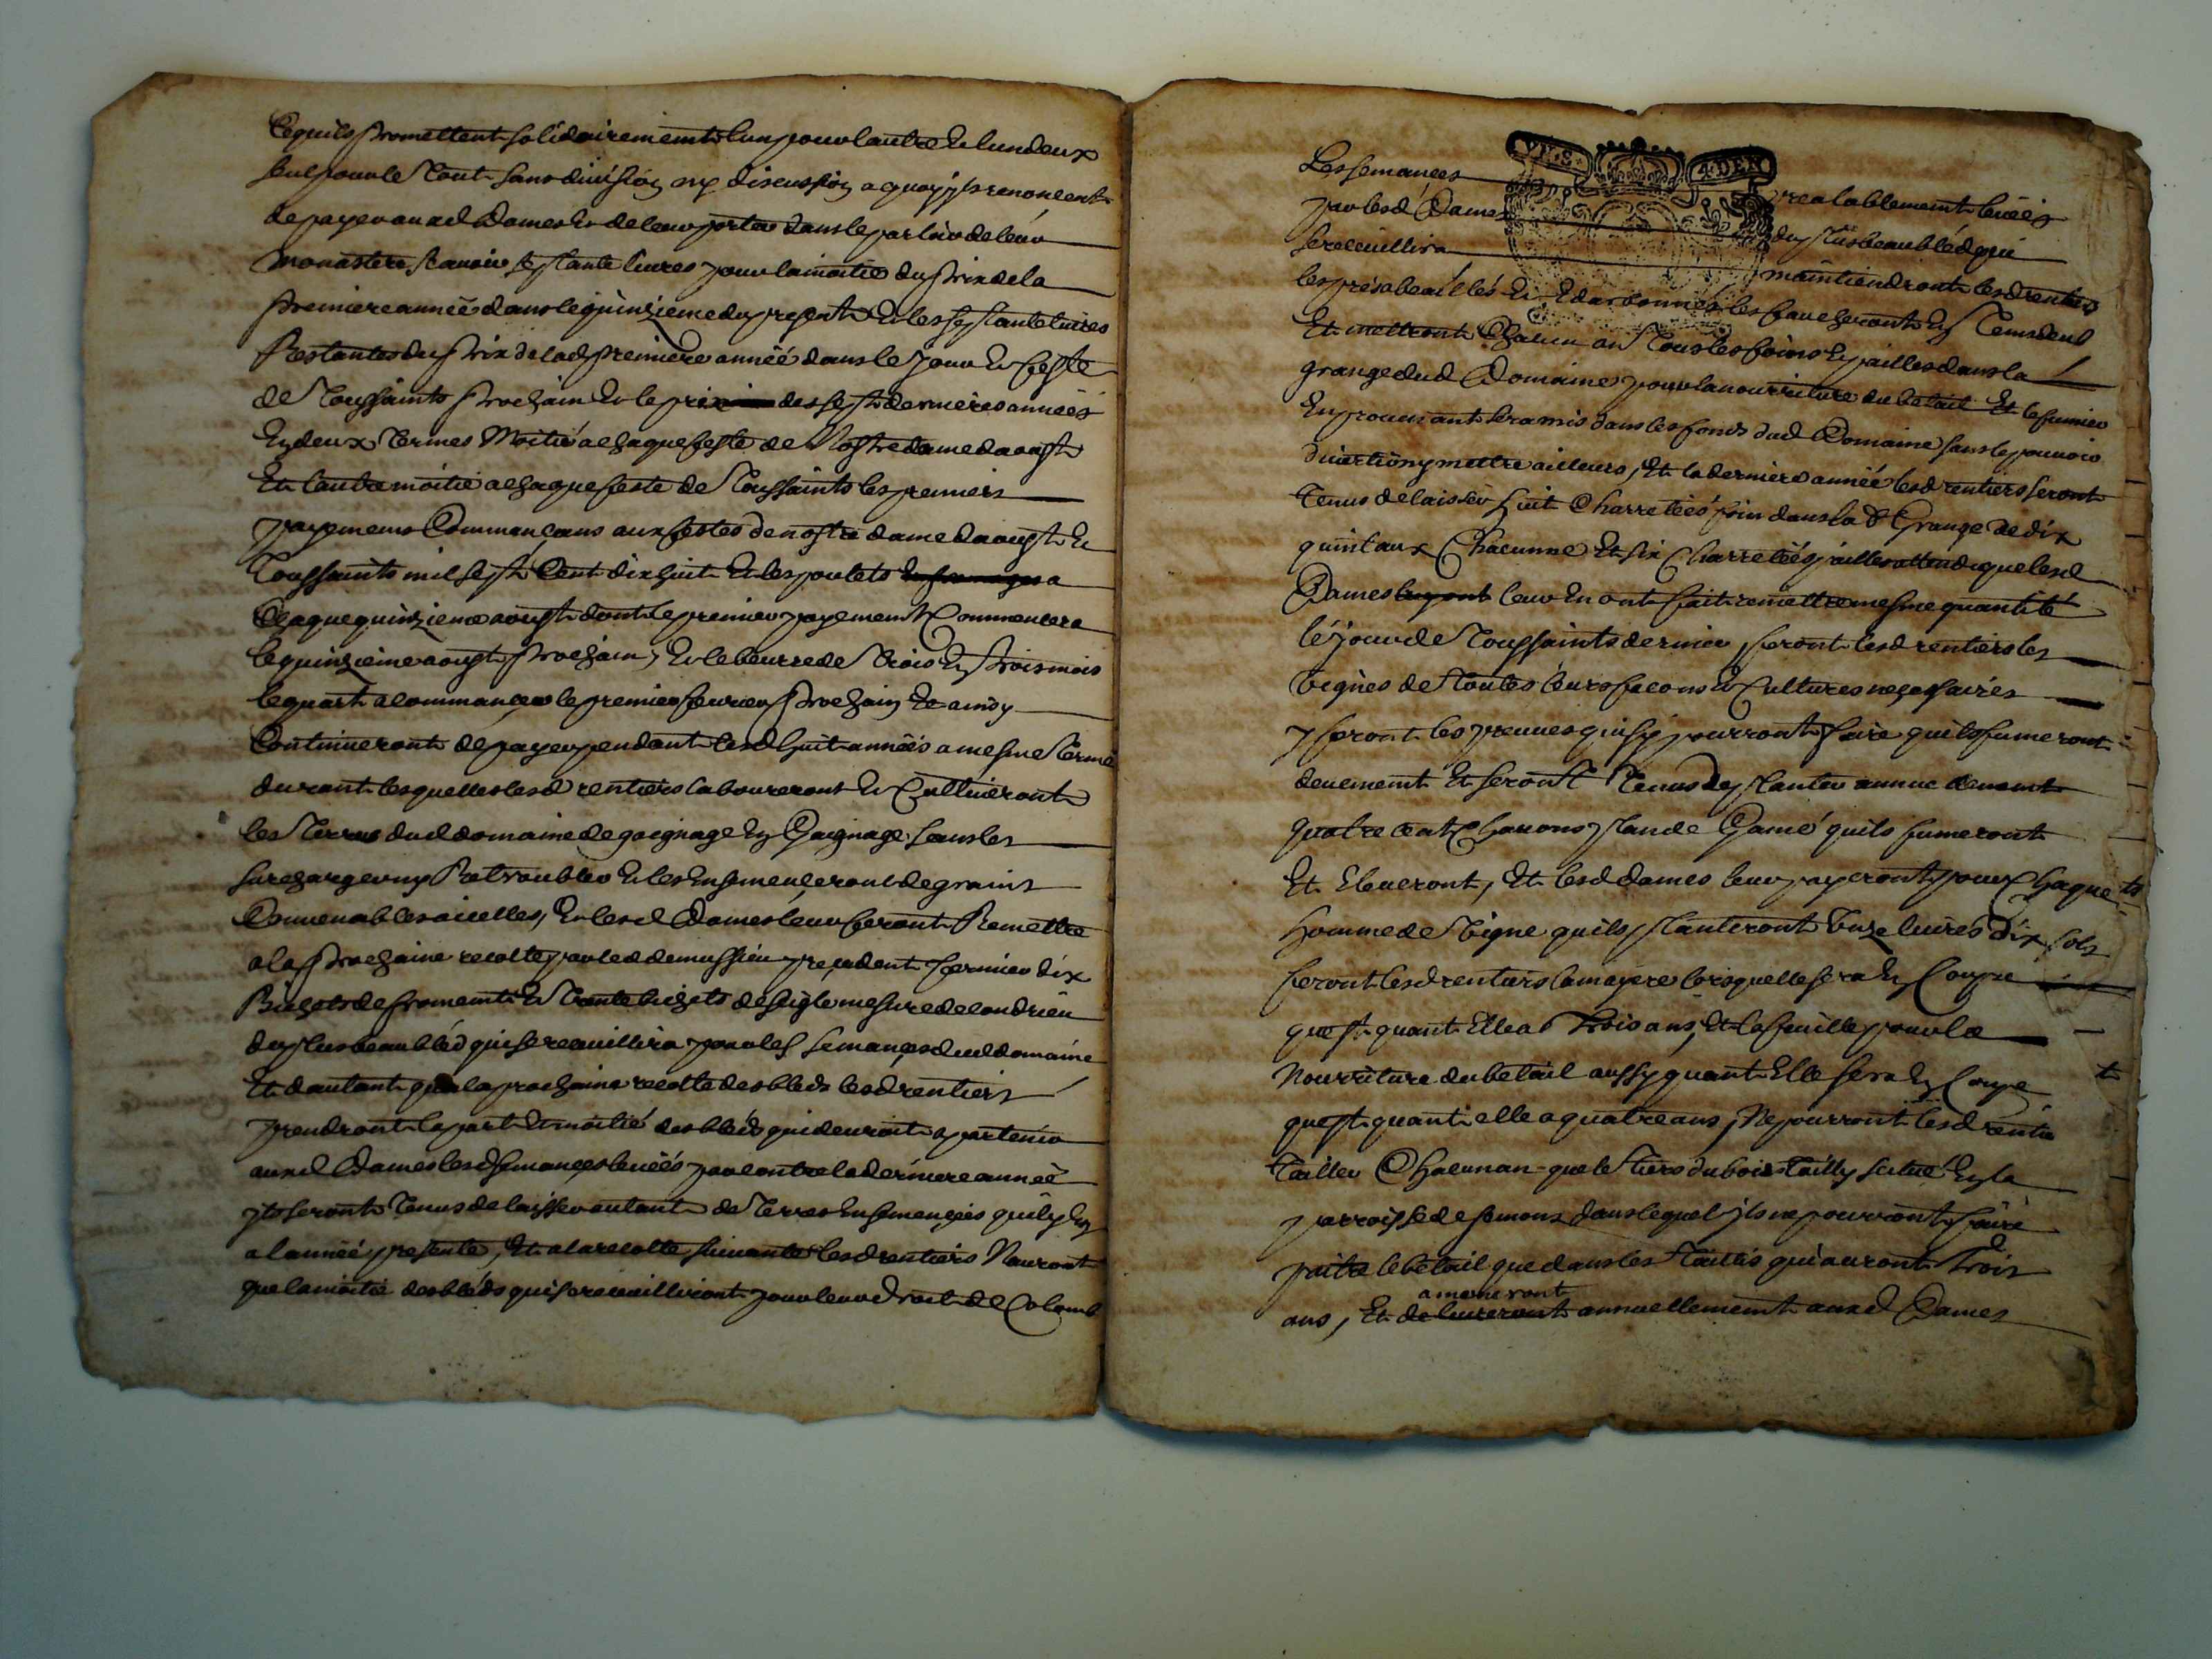 ce quils promettent solidairement lun pour lautre et lun deux
seul pour le tout sans division ny discussion a quoy jls renoncent
de payer auxd Dames et de leur porter dans le parloir de leur
monastere scavoir septante livres pour la moitié du prix de la
premiere année dans le quinzieme du present et les septante livres
Restantes du prix de lad premiere année dans le jour et feste
de Toussaints prochain et le prix des sept dernieres années
En deux termes Moitié a chaque feste de Nostre dame daoust
Et lautre moitié a chaque feste de Toussaints les premiers
payemens Commançans aux festes de nostre dame daoust et
Toussaints mil sept Cent dix huit Et les poulets a
Chaque quinzieme aoust dont le premier payement Commencera
le quinzieme aoust prochain, Et le beurre de trois En trois mois
le quart a commancer le premier fevrier prochain Et ainsy
Continueront de payer pendant lesd huit années a mesme terme
durant lesquelles lesd rentiers laboureront et Cultiveront
les Terres dud domaine de gaignage En Gaignage sans les
surcharger ny Retroubler Et les Ensemenceront de grains
Convenables a icelles, Et lesd Dames leur feront Remettre
a la prochaine recolte par led demussieu precedent fermier dix
Bichets de froment Et Trente bichets de seigle mesure de condrieu
du plus beau bled qui se recuillira pour les semances dud domaine
Et dautant qua la prochaine recolte des bleds lesd rentiers
prendront la part Et moitié des bleds qui devroit apartenir
auxd Dames lesd semances levées par contre la derniere année
jls seront Tenus de laisser autant de Terres Ensemencées quil y En
a lannée presente, Et a la recolte suivante lesd rentiers Nauront
que la moitié des bleds qui se recuilliront pour leur droit de Colonb
Les semances prealablement levées
VI . S . 4 . DEN
par lesd Dames du plus beau bled qui
se recuillira maintiendront lesd rentiers
les prés abeallés Et Edarbonnés les faucheront En Tems deub
Et mettront Chacun an Tous les foins Et pailles dans la
grange dud Domaine pour la nourriture du betail Et le fumier
En provenant sera mis dans les fonds dud Domaine sans le pouvoir
divertir ny mettre ailleurs, Et la derniere année lesd rentiers seront
Tenus de laisser huit Charretées foin dans la d Grange de dix
quintaux Chacunne Et six Charretées pailles attendu que lesd
Dames leur En ont fait remettre mesme quantité
le jour de Toussaints dernier, feront lesd rentiers les
vignes de Toutes leurs façons Et Cultures necessaires
y feront les preuves qui sy pourront faire quils fumeront
deuement Et seront Tenus dy planter annuellement
quatre cent chavons plan de Gamé quils fumeront
Et Eleveront, Et lesd dames leur payeront pour Chaque
homme de vigne quils planteront onze livres dix sols
feront lesd rentiers la mayere lorsquelle sera En Coupe
quest quant Elle a Trois ans, Et la feuille pour la
Nourriture du betail aussy quant Elle sera En Coupe
quest quant elle a quatre ans, Ne pourront lesd rentiers
Tailler Chacun an que le Tiers du bois Tailly scitué En la
parroisse de semons dans lequel jls ne pourront faire
paitre le betail que dans les Taillis qui auront Trois
ameneront
ans, Et de livreront annuellement auxd Dames